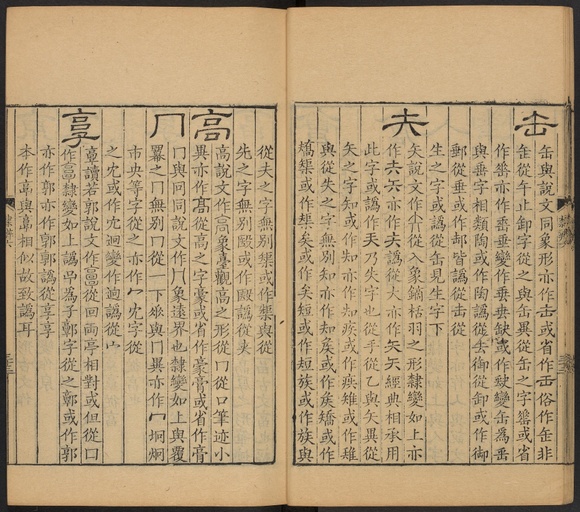 缶 缶與說文同象形亦作𦈢或省作缶俗作缶非
缶從午止卸字從之與缶異從缶之字䍃或省
作䍃亦作䍃垂變作垂垂缺或作缺變缶爲垂
與垂字相類陶或作陶譌從缶御從卸或作御
郵從垂或作郵皆譌從缶從
生之字或譌從缶見生字下
夫 矢說文作𠂕從入象鏑栝羽之形隸變如上亦
作夫夭亦作夫譌從大亦作矢夭經典相承用
此字或譌作夭乃失字也從手從乙與矢異從
矢之字知或作知亦作知疾或作疾雉或作雉
與從失之字無別知亦作知矣或作矣矯或作
矯榘或作榘矣或作矣短或作短族或作族與
從夫之字無別榘或作榘與從
先之字無別毉或作毉譌從夫
高 高說文作高象臺觀高之形從冂從口筆迹小
異亦作髙從高之字豪或省作豪膏或省作膏
冂 冂與冋同說文作冂象遠界也隸變如上與覆
冪之冖無別冂從一下垂與冂異亦作冖坰炯
市央等字從之亦作冖尢字從
之尢或作尢迥變作逈譌從宀
享 𩫖讀若郭說文作𩫖從回兩亭相對或但從口
作𩫖隸變如上譌㫗爲子鄣字從之郭或作郭
亦作郭亦作郭郭譌從享享
本作亯與𩫖相似故致譌耳